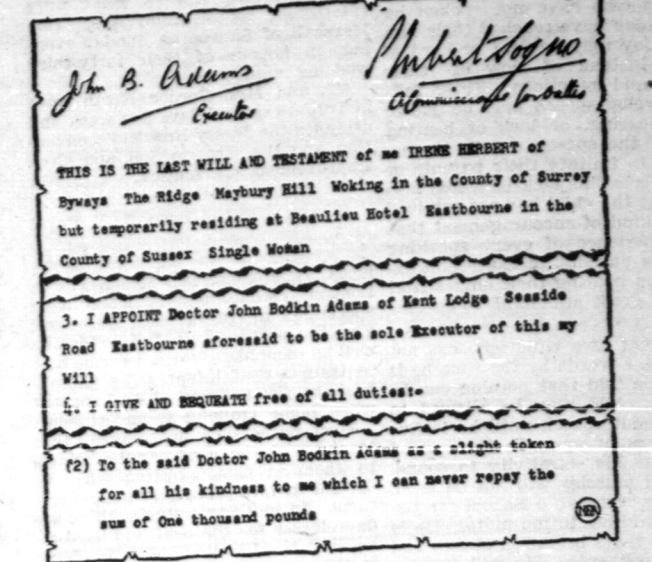 John B. Adams
Executor
Hubert Sogno
A Commissioner for Oaths
THIS IS THE LAST WILL AND TESTAMENT of me IRENE HERBERT of
Byways The Ridge Maybury Hill Woking in the County of Surrey
but temporarily residing at Beaulieu Hotel Eastbourne in the
County of Sussex Single Woman
3. I APPOINT Doctor John Bodkin Adams of Kent Lodge Seaside
Road Eastbourne aforesaid to be the sole Executor of this my
Will
4. I GIVE AND BEQUEATH free of all duties:-
(2) To the said Doctor John Bodkin Adams as a slight token
for all his kindness to me which I can never repay the
sum of One thousand pounds